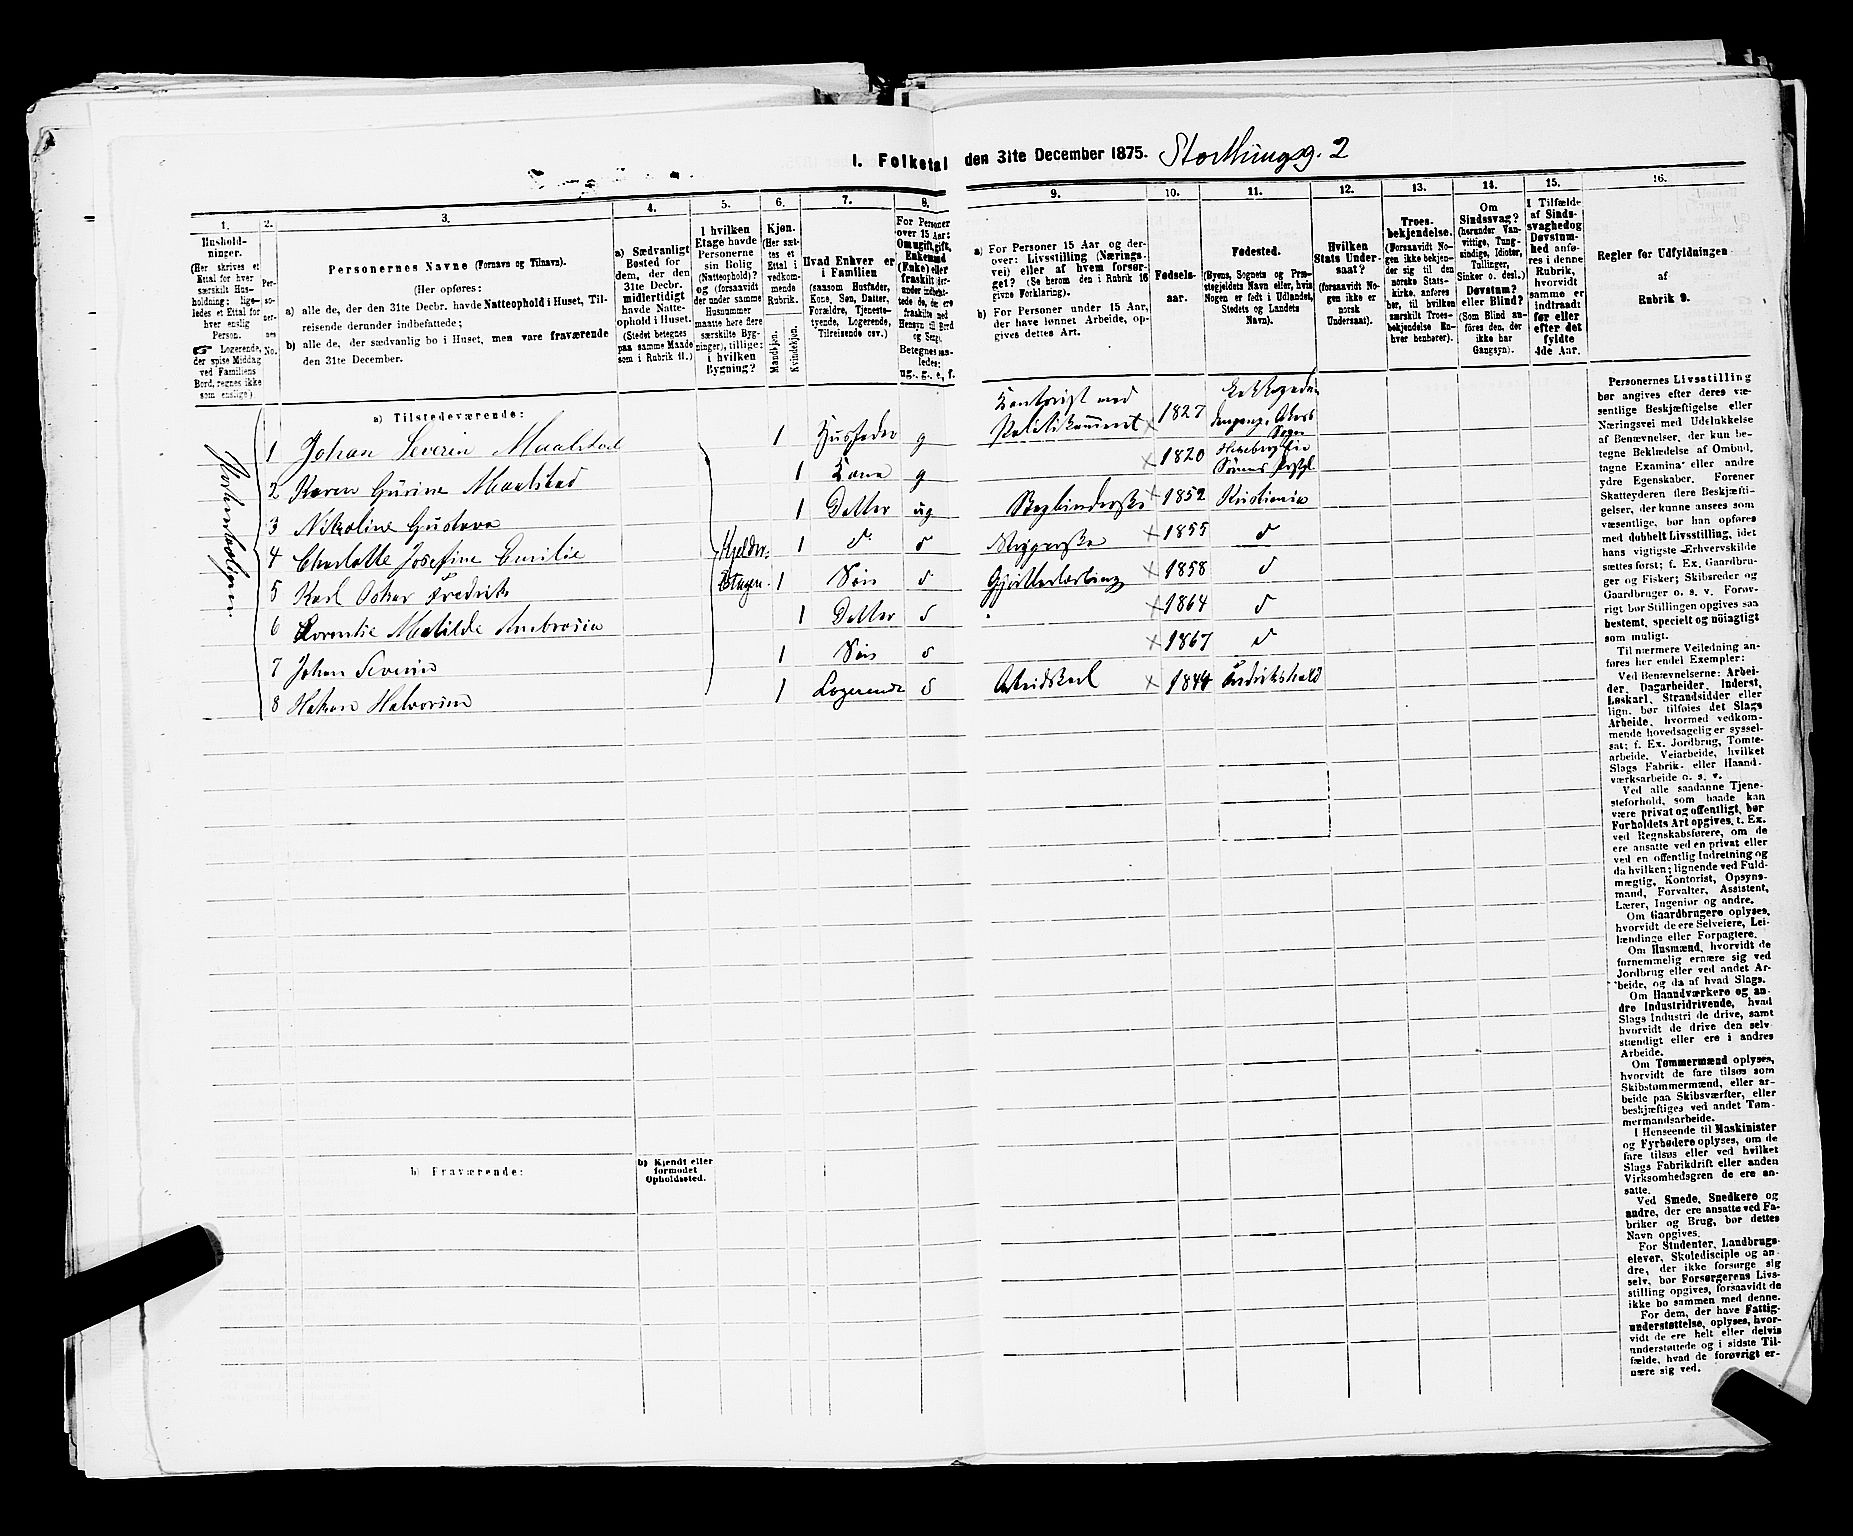 I. Folketal den 31te December 1875. Storthingsg. 2
1.
Hushold-
ninger.
(Her skrives et
Ettal for hver
særskilt Hus-
holdning; lige-
ledes et Ettal for
hver enslig
Person.
☛ Logerende,
der spise Middag
ved Familiens
Bord, regnes ikke
som enslige)
2.
Per-
so-
ner-
nes
No.
3.
Personernes Navne (Fornavn og Tilnavn).
(Her opføres:
a) alle de, der den 31te Decbr. havde Natteophold i Huset, Til-
reisende derunder indbefattede;
b) alle de, der sædvanlig bo i Huset, men vare fraværende
den 31te December.
4.
a) Sædvanligt
Bosted for
dem, der den
31te Decbr.
midlertidigt
havde Natte-
ophold i Huset.
(Stedet betegnes
paa samme Maade
som i Rubrik 11.)
5.
I hvilken
Etage havde
Personerne
sin Bolig
(Natteophold)?
og (forsaavidt
der under samme
Husnummer
maatte høre flere
særskilte Byg-
ninger), tillige:
i hvilken
Bygning?
6.
Kjøn.
(Her sæt-
tes et
Ettal i
vedkom-
mende
Rubrik.
Mandkjøn.
Kvindekjøn.
7.
Hvad Enhver er
i Familien
(saasom Husfader,
Kone, Søn, Datter,
Forældre, Tjeneste-
tyende, Logerende,
Tilreisende osv.)
8.
For Personer
over 15 Aar:
Om ugift, gift,
Enkemand
(Enke) eller
fraskilt
Betegnes saa-
ledes:
ug., g., e., f.
9.
a) For Personer 15 Aar og der-
over: Livsstilling (Nærings-
vei) eller af hvem forsør-
get? (Se herom den i Rubrik 16
givne Forklaring).
b) For Personer under 15 Aar,
der have lønnet Arbeide, op-
gives dettes Art.
10.
Fødsels-
aar.
11.
Fødested.
(Byens, Sognets og Præ-
stegjeldets Navn eller, hvis
Nogen er født i Udlandet,
Stedets og Landets
Navn).
12.
Hvilken
Stats Under-
saat?
(forsaavidt No-
gen ikke er
norsk
Undersaat).
13.
Troes-
bekjendelse.
(Forsaavidt No-
gen ikke bekjen-
der sig til den
norske Stats-
kirke, anføres
her, til hvilken
særskilt Troes-
bekjendelse En-
hver henhører).
14.
Om
Sindssvag?
(herunder Van-
vittige, Tung-
sindige, Idioter,
Tullinger,
Sinker o. desl.)
Døvstum?
eller Blind?
(Som Blind an-
føres den, der
ikke har
Gangsyn).
15.
I Tilfælde
af Sinds-
svaghed og
Døvstum-
hed anfø-
res i denne
Rubrik,
hvorvidt
samme er
indtraadt
før eller
efter det
fyldte
4de Aar.
16.
Regler for Udfyldningen
af
Rubrik 9.
a) Tilstedeværende:
1 Johan Severin Maalstad 1 Husfader g Kontorist ved Politikammeret 1827
2 Karen Gurine Maalstad 1 Kone g 1820
3 Nikoline Gustava 1 Datter ug 1852 Kristiania
4 Charlotte Josefine Emilie Kjelder- 1 d 1855 d
5 Karl Oskar Fredrik Etagen 1 Søn 1858 d
6 Lorentse Matilde Ambrosia 1 Datter 1864 d
7 Johan Severin 1 Søn 1867 d
8 Hakon Halvorsen 1 Logerende Arbeidskarl 1844 Fredrikshald
b) Fraværende:
b) Kjendt eller
formodet
Opholdssted.
Personernes Livsstilling
bør angives efter deres væ-
sentlige Beskjæftigelse eller
Næringsvei med Udelukkelse
af Benævnelser, der kun be-
tegne Beklædelse af Ombud,
tagne Examina eller andre
ydre Egenskaber. Forener
Skatteyderen flere Beskjæfti-
gelser, der kunne ansees som
væsentlige, bør han opføres
med dobbelt Livsstilling, idet
hans vigtigste Erhvervskilde
sættes først; f. Ex. Gaardbru-
ger og Fisker; Skibsreder og
Gaardbruger o. s. v. Forøv-
rigt bør Stillingen opgives saa
bestemt, specielt og nøiagtigt
som muligt.
Til nærmere Veiledning an-
føres her endel Exempler:
Ved Benævnelserne: Arbei-
der, Dagarbeider, Inderst,
Løskarl, Strandsidder eller
lign. bør tilføies det Slags
Arbeide, hvormed vedkom-
mende hovedsagelig er syssel-
sat; f. Ex. Jordbrug, Tomte-
arbeide, Veiarbeide, hvilket
Slags Fabrik- eller Haand-
værksarbeide o. s. v.
Ved alle saadanne Tjene-
steforhold, som baade kan
være privat og offentligt, bør
Forholdets Art opgives, t. Ex.
ved Regnskabsførere, om de
ere ansatte ved en privat eller
ved en offentlig Indretning og
da hvilken; lignende ved Fuld-
mægtig, Kontorist, Opsyns-
mand, Forvalter, Assistent,
Lærer, Ingeniør og andre.
Om Gaardbrugere oplyses,
hvorvidt de ere Selveiere, Lei-
lændinge eller Forpagtere.
Om Husmænd, hvorvidt de
fornemmelig ernære sig ved
Jordbrug eller ved andet Ar-
beide, og da af hvad Slags.
Om Haandværkere og an-
dre Industridrivende, hvad
Slags Industri de drive, samt
hvorvidt de drive den selv-
stændigt eller ere i andres
Arbeide.
Om Tømmermænd oplyses,
hvorvidt de fare tilsøs som
Skibstømmermænd, eller ar-
beide paa Skibsværfter, eller
beskjæftiges ved andet Tøm-
mermandsarbeide.
I Henseende til Maskinister
og Fyrbødere oplyses, om de
fare tilsøs eller ved hvilket
Slags Fabrikdrift eller anden
Virksomhedsgren de ere an-
satte.
Ved Smede, Snedkere og
andre, der ere ansatte ved Fa-
briker og Brug, bør dettes
Navn opgives.
For Studenter, Landbrugs-
elever, Skoledisciple og an-
dre, der ikke forsørge sig
selv, bør Forsørgerens Livs-
stilling opgives, forsaavidt de
ikke bo sammen med denne.
For dem, der have Fattig-
understøttelse, oplyses, hvor-
vidt de ere helt eller delvis
understøttede og i sidste Til-
fælde, hvad de forøvrigt er-
nære sig ved.